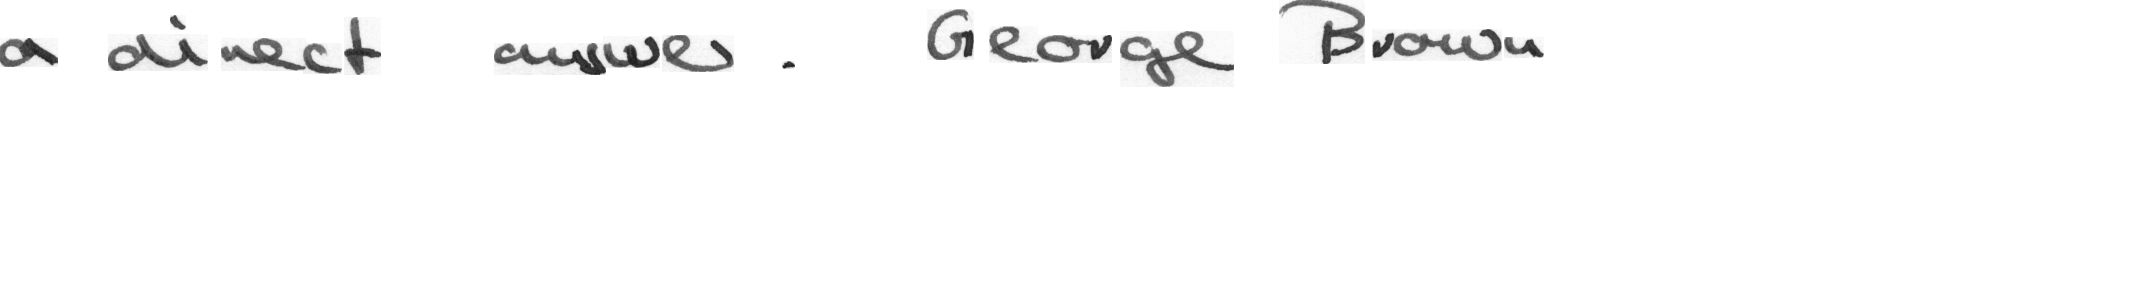 a direct answer. George Brown